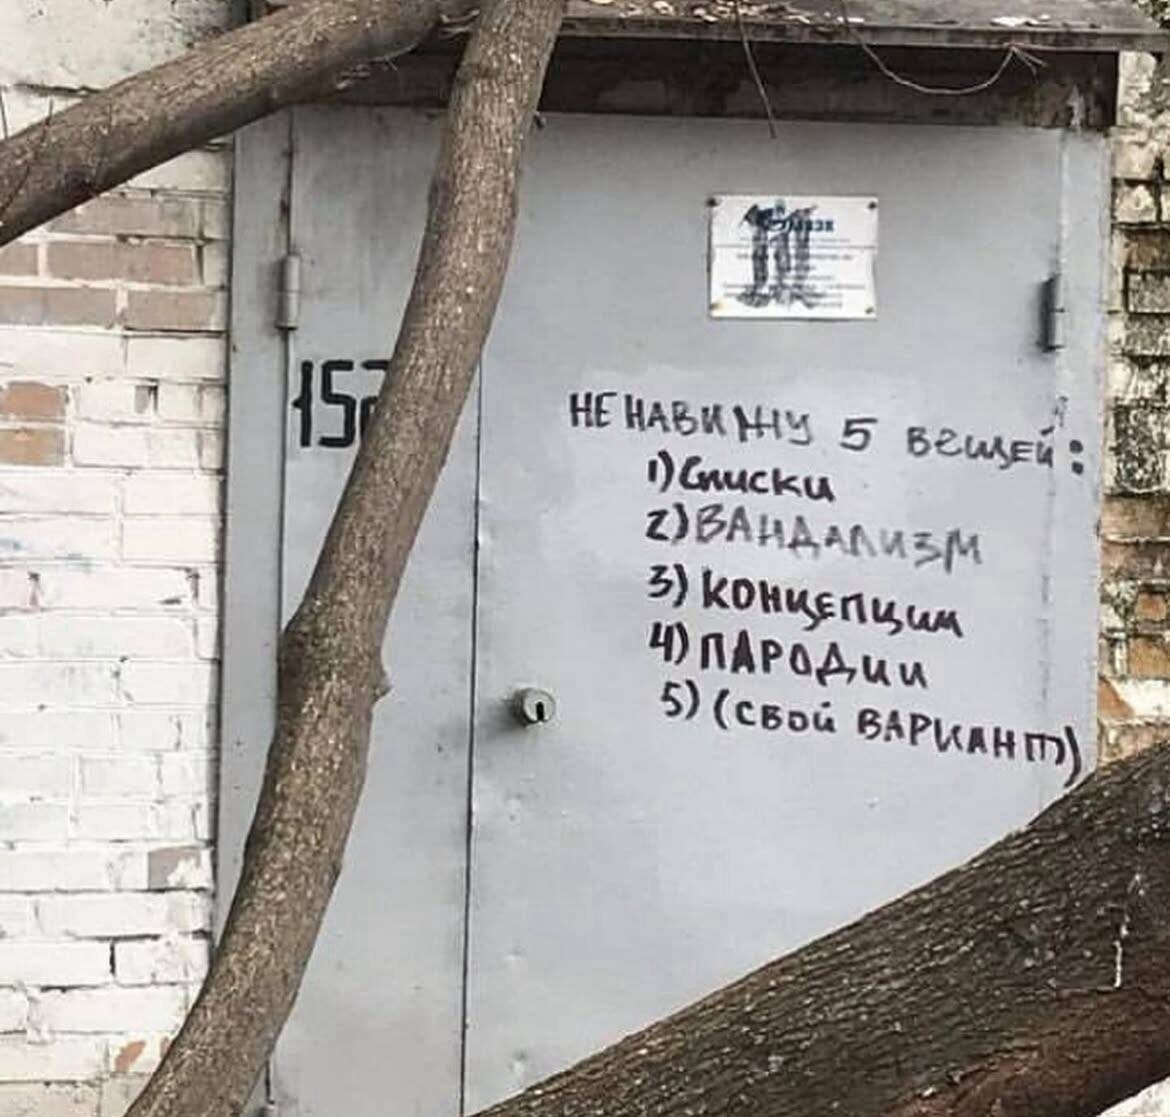 НЕНАВИЖУ 5 ВЕЩЕЙ:
1) Списки
2) ВАНДАЛИЗМ
3) КОНЦЕПЦИИ
4) ПАРОДИИ
5) (СВОЙ ВАРИАНТ)